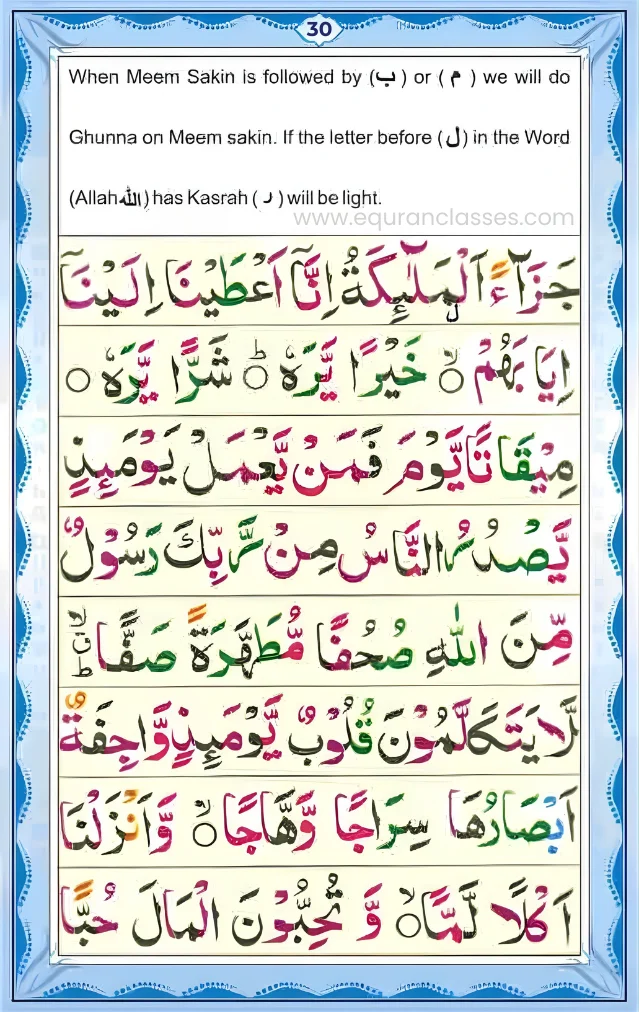 30
When Meem Sakin is followed by (ب) or (م) we will do
Ghunna on Meem sakin. If the letter before (ل) in the Word
(Allah الله) has Kasrah (ر) will be light.
www.equranclasses.com
جَزَآءً اَلْمَلٰٓئِكَةُ اِنَّآ اَعْطَيْنَا اِلَيْنَآ
اِيَا بَهُمْ ۙ خَيْرًا يَّرَهٗ ؕ شَرًّا يَّرَهٗ
مِيْقَا تًا يَّوْمَ فَمَنْ يَّعْمَلْ يَوْمَئِذٍ
يَّصْدُرُ النَّاسُ مِنْ رَّبِّكَ رَسُوْلٌ
مِّنَ اللّٰهِ صُحُفًا مُّطَهَّرَةً صَفًّا
لَّا يَتَكَلَّمُوْنَ قُلُوْبٌ يَّوْمَئِذٍ وَّاجِفَةٌ
اَبْصَارُهَا سِرَاجًا وَّهَّاجًا ۙ وَّاَنْزَلْنَا
اَكْلًا لَّمًّا ۙ وَّ تُحِبُّوْنَ الْمَالَ حُبًّا